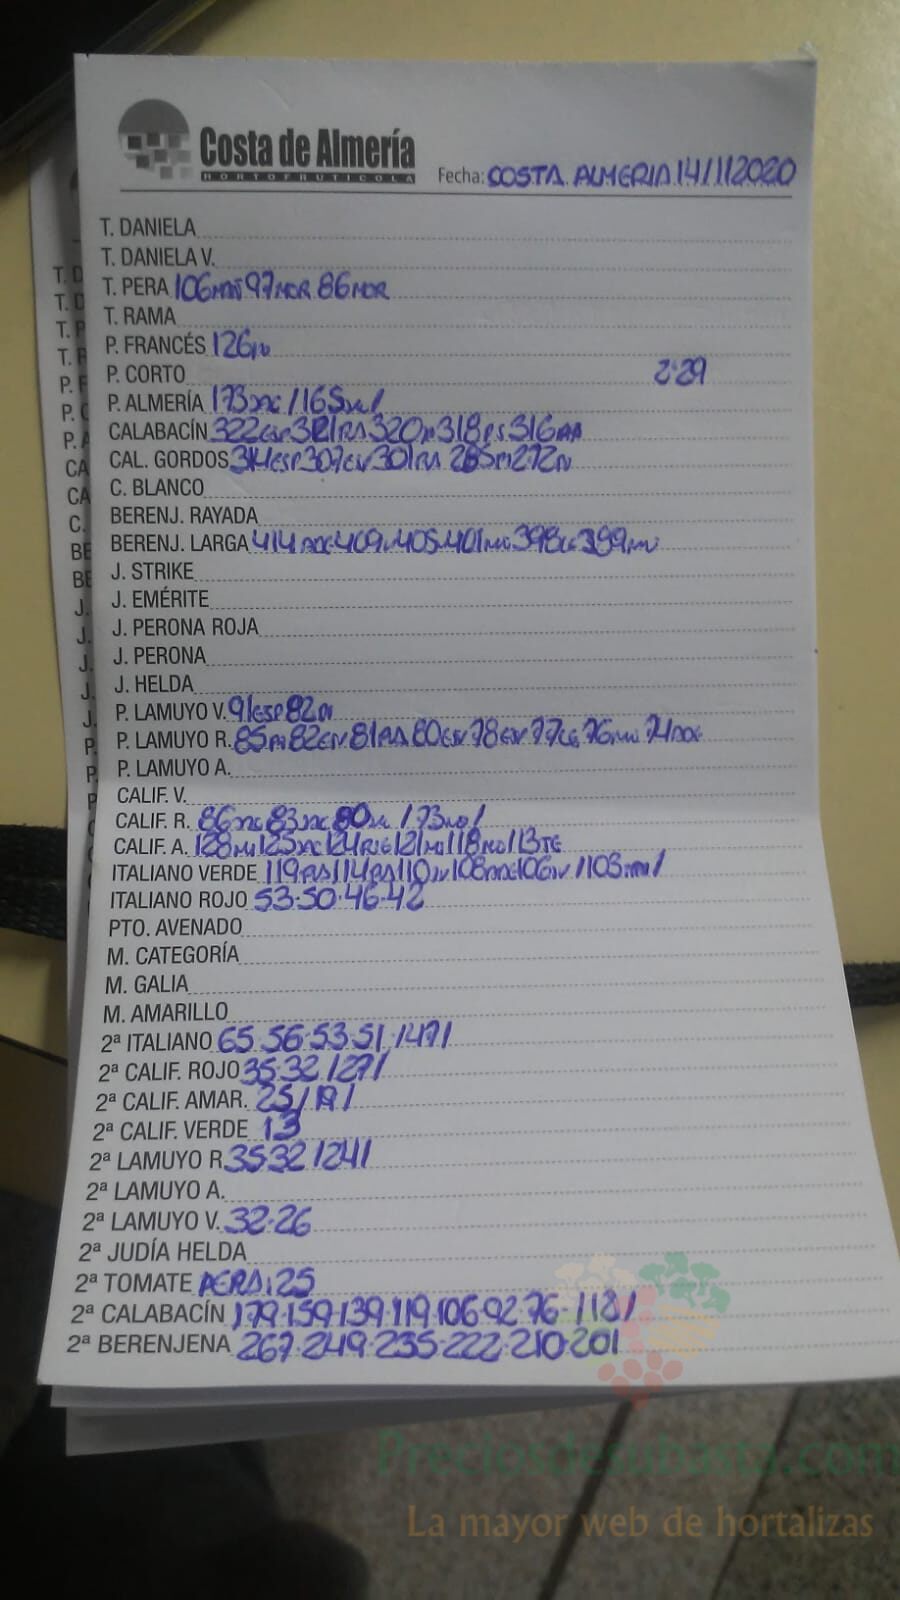 Costa de Almería
HORTOFRUTICOLA
Fecha: COSTA ALMERIA 14/1/2020
T. DANIELA
T. DANIELA V.
T. PERA 106 97MOR 86MOR
T. RAMA
P. FRANCÉS 126
P. CORTO 2·29
P. ALMERÍA 173 /165 /
CALABACÍN 322 320 318 316
CAL. GORDOS 314ESP 307EN 301 285 272
C. BLANCO
BERENJ. RAYADA
BERENJ. LARGA 414 409 405 401 398 399
J. STRIKE
J. EMÉRITE
J. PERONA ROJA
J. PERONA
J. HELDA
P. LAMUYO V. 91ESP 82
P. LAMUYO R. 85 82EN 81 80EN 78EN 77 76 74
P. LAMUYO A.
CALIF. V.
CALIF. R. 86 83 80 /73 /
CALIF. A. 128 125 124 121 118 113TE
ITALIANO VERDE 119 114 110 108 106 /103 /
ITALIANO ROJO 53·50·46·42
PTO. AVENADO
M. CATEGORÍA
M. GALIA
M. AMARILLO
2ª ITALIANO 65·56·53·51·/47/
2ª CALIF. ROJO 35·32 /27/
2ª CALIF. AMAR. 25/ /
2ª CALIF. VERDE 13
2ª LAMUYO R 35 32 /24/
2ª LAMUYO A.
2ª LAMUYO V. 32·26
2ª JUDÍA HELDA
2ª TOMATE PERA: 25
2ª CALABACÍN 179·159·139·119·106·92·76·
2ª BERENJENA 267·249·235·222·210·201
Preciosdesubasta.com
La mayor web de hortalizas